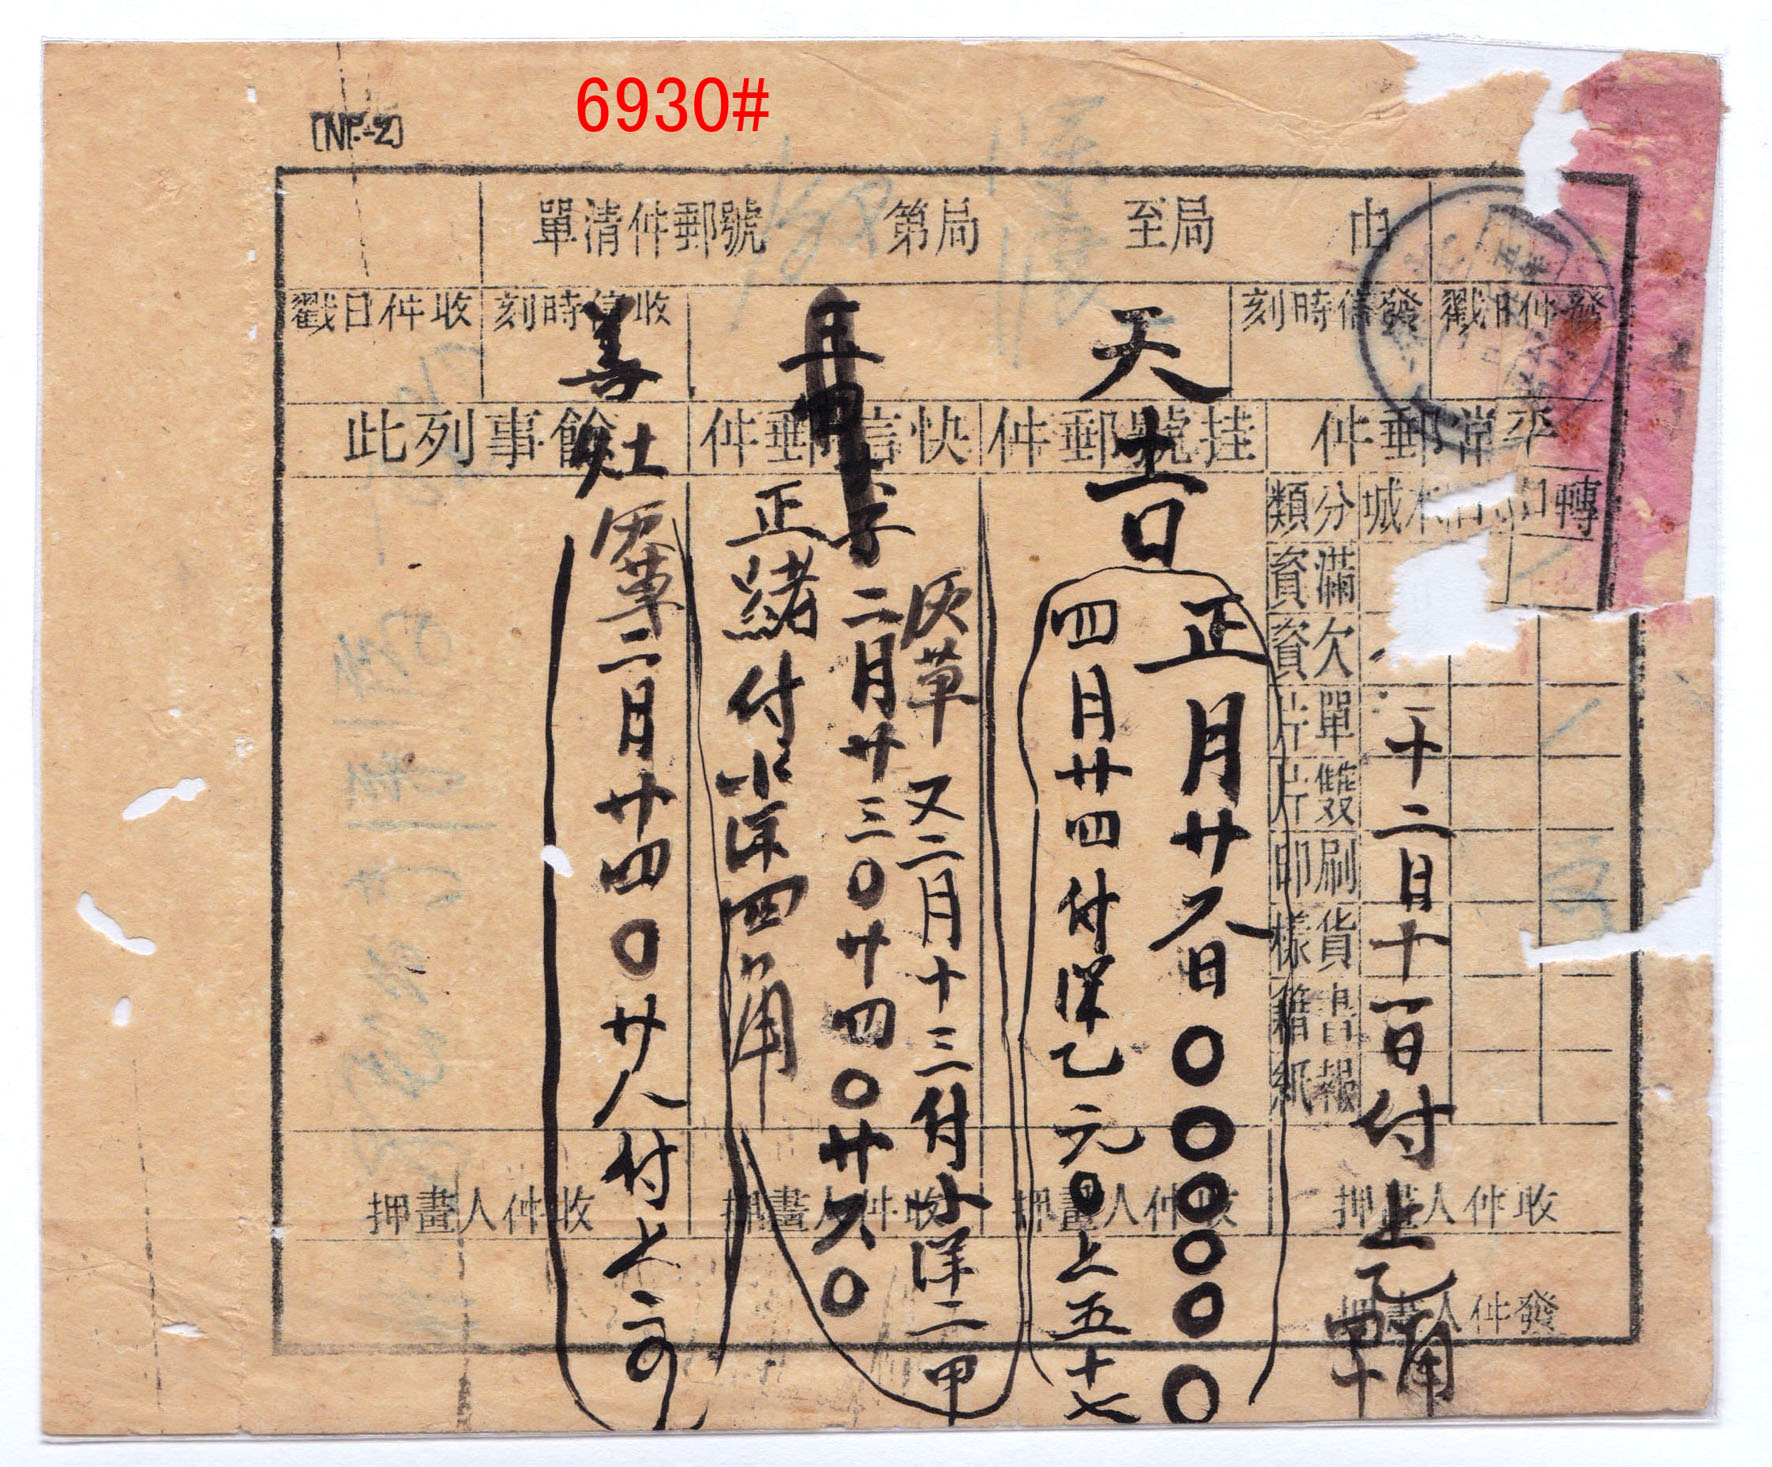 6930#
[NP-2]
由 至局 第局 單清件郵號
發件日戳 發信時刻 收信時刻 收件日戳
平常郵件 挂號郵件 快信郵件 餘事列此
分類 本城 轉口
滿資
欠資
單片
雙片
刷印
貨樣
書籍
報紙
收件人畫押 收件人畫押 收件人畫押 收件人畫押
發件人畫押
十二月十一日付上乙角
天吉
正月廿八日〇〇〇〇〇〇
四月廿四付洋乙元〇上五十七
灰草 又二月十三付小洋二甲
二月廿三〇廿四〇廿六〇
正緒付小洋四角
善灶
灰草二月廿四〇廿八付上